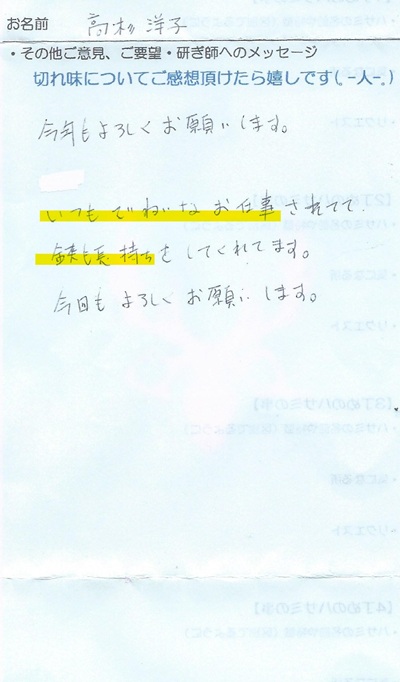 お名前 高杉 洋子
・その他ご意見、ご要望・研ぎ師へのメッセージ
切れ味についてご感想頂けたら嬉しです(. -人-.)
今年もよろしくお願いします。
いつもでねいなお仕事されてて
鋏も長持ちをしてくれてます。
今回もよろしくお願いします。